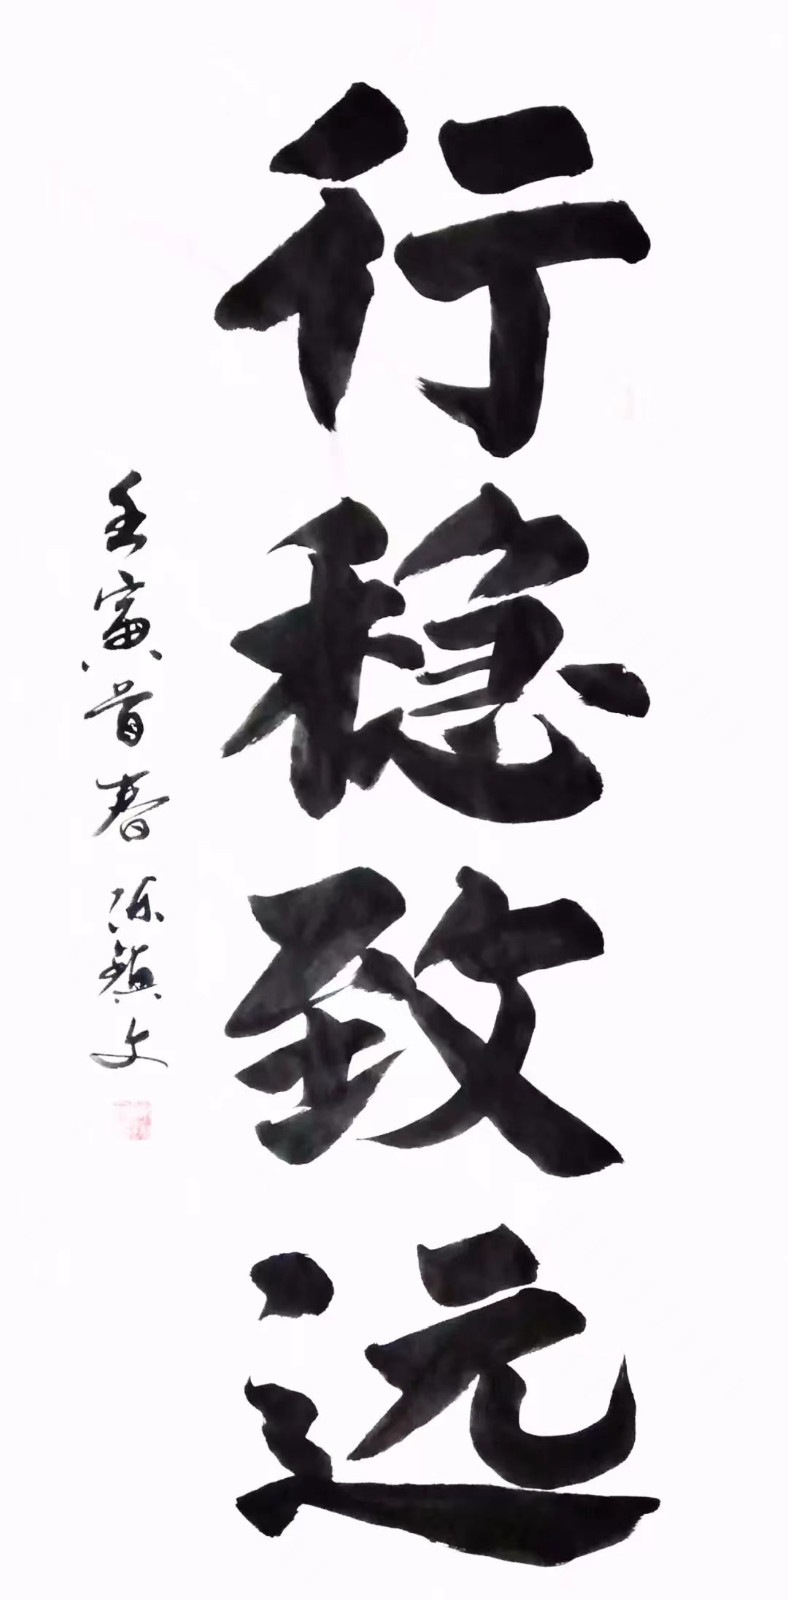 行稳致远
壬寅首春 陈镇文